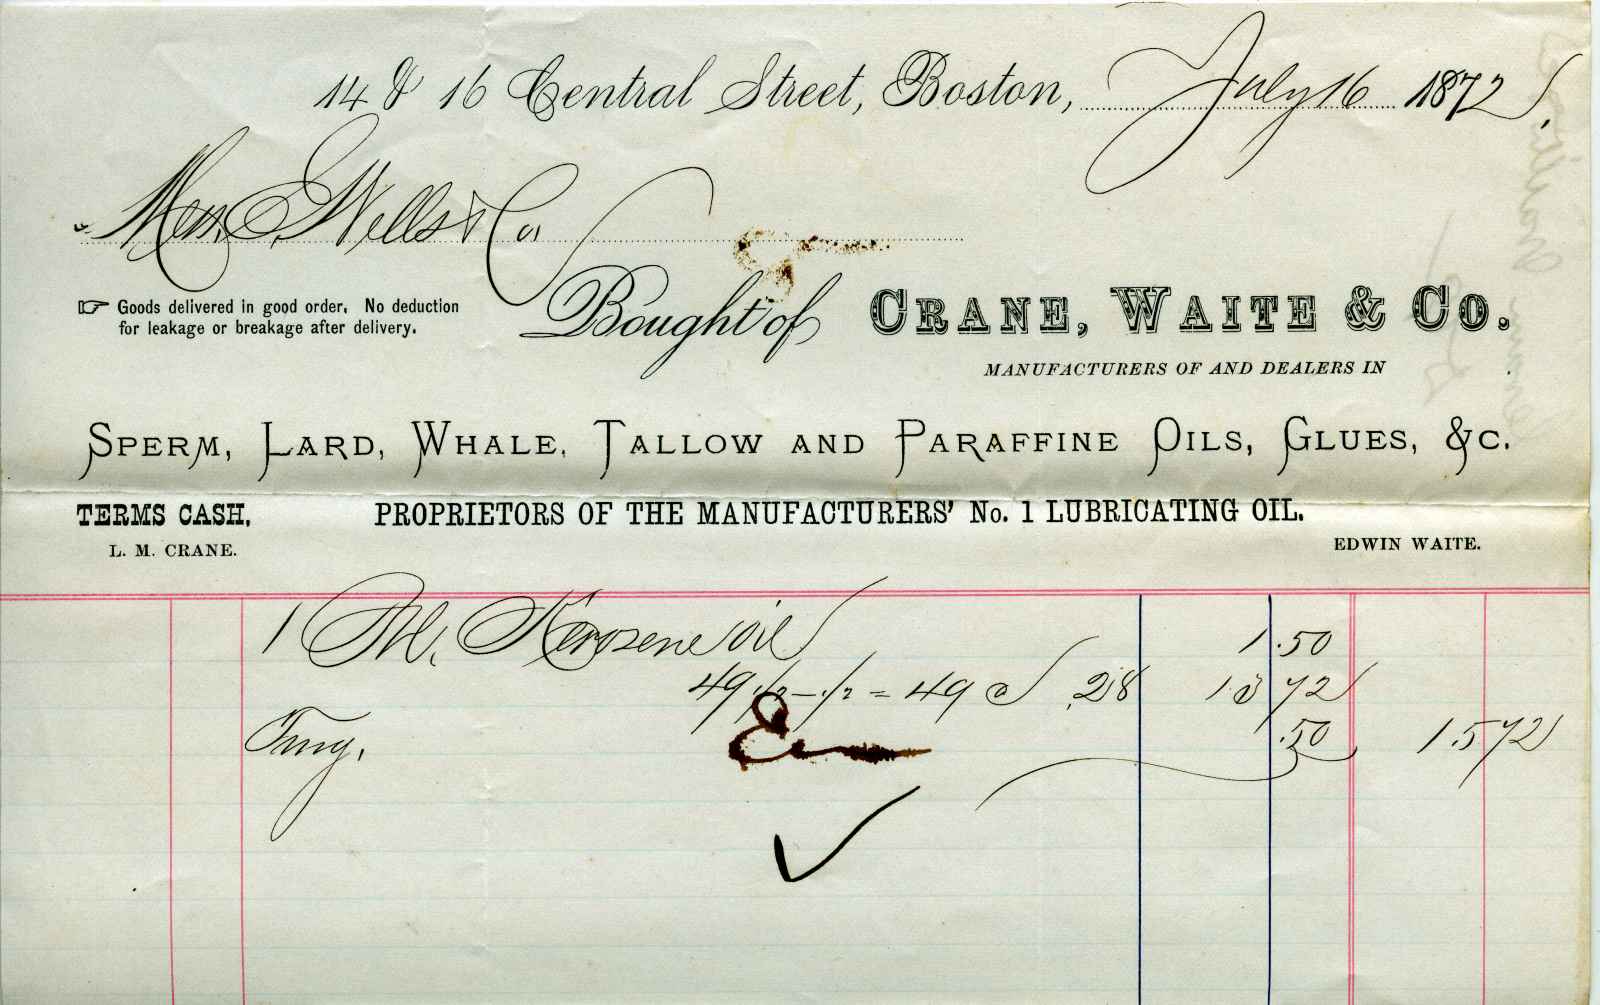 14 & 16 Central Street, Boston, July 16 1872.
Mess. E. Wells & Co.
☞ Goods delivered in good order. No deduction
for leakage or breakage after delivery.
Bought of CRANE, WAITE & CO.
MANUFACTURERS OF AND DEALERS IN
SPERM, LARD, WHALE, TALLOW AND PARAFFINE OILS, GLUES, &C.
TERMS CASH. PROPRIETORS OF THE MANUFACTURERS' No. 1 LUBRICATING OIL.
L. M. CRANE. EDWIN WAITE.
1 Bbl. Kerosene Oil 1.50
49 1/2 – 1/2 = 49 @ 28 13 72
.50 15 72